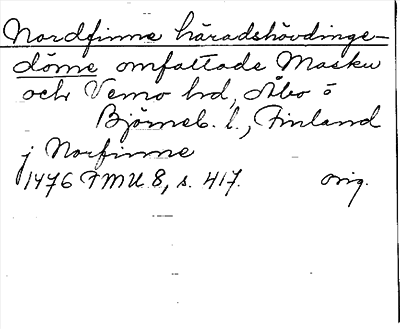 Nordfinne häradshövdinge-
döme omfattade Masku
och Vemo hd, Åbo o
Björneb. l., Finland
j Norfinne
1476 FMU 8, s. 417. orig.